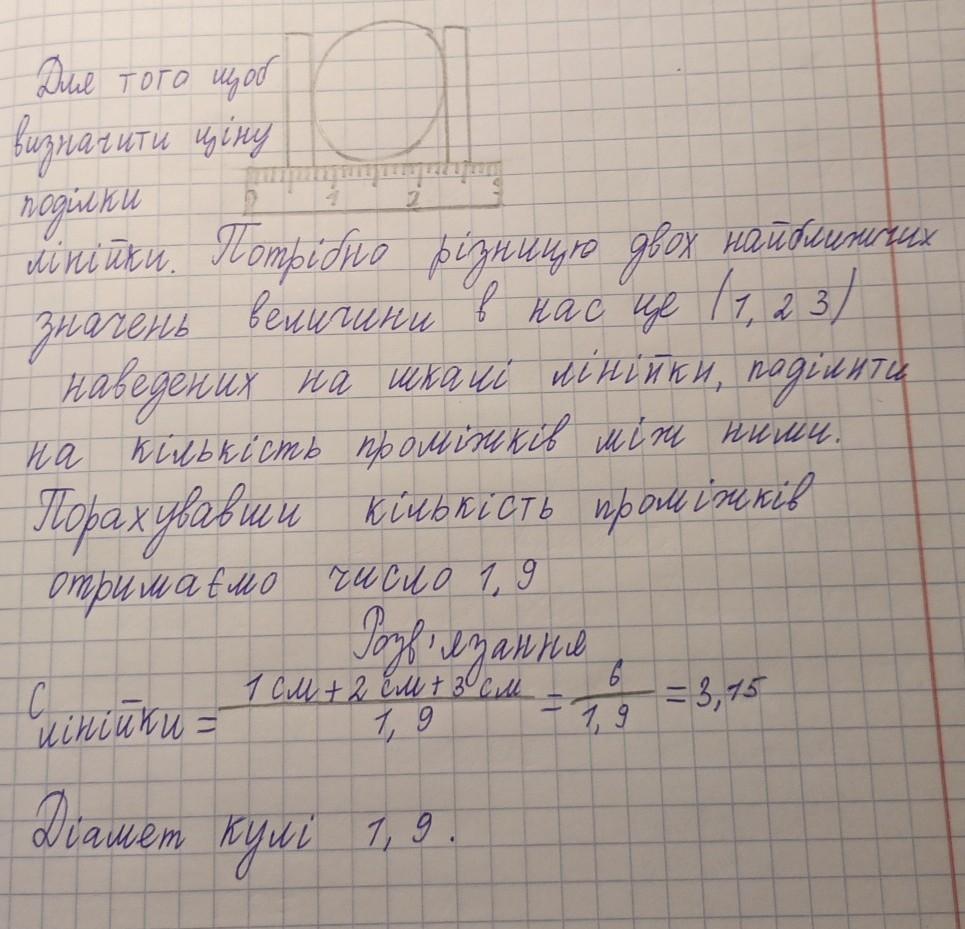 Для того щоб
визначити ціну
поділки
0 1 2 3
лінійки. Потрібно різницю двох найближчих
значень величини в нас це (1, 2 3)
наведених на шкалі лінійки, поділити
на кількість проміжків між ними.
Порахувавши кількість проміжків
отримаємо число 1,9
Розв'язання
C лінійки = 1 см + 2 см + 3 см / 1,9 = 6 / 1,9 = 3,15
Діамет кулі 1,9.